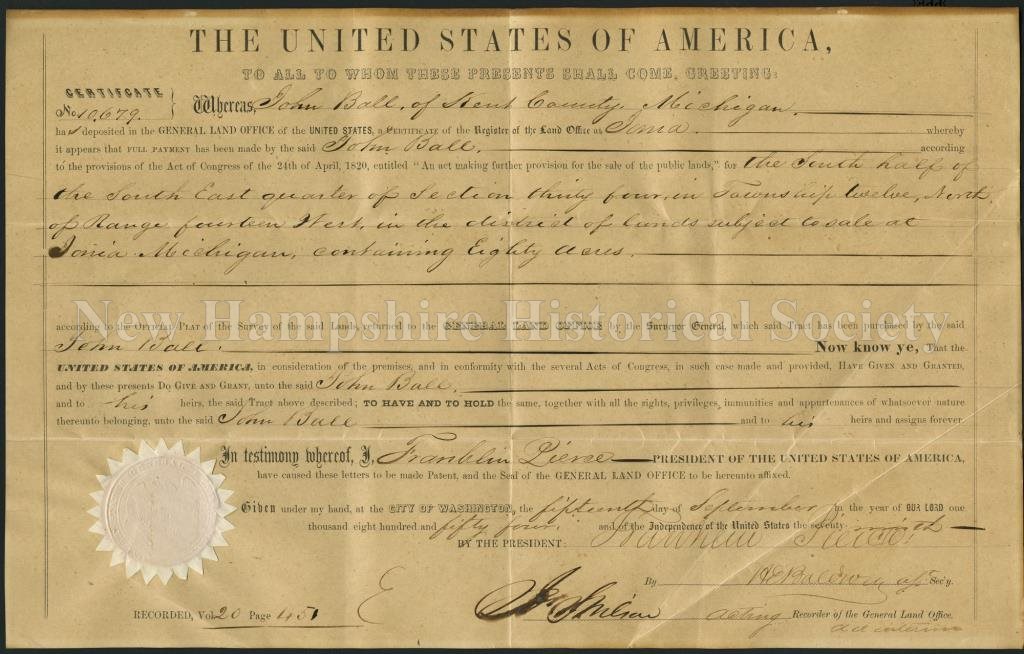 THE UNITED STATES OF AMERICA,
TO ALL TO WHOM THESE PRESENTS SHALL COME, GREETING:
CERTIFICATE
No. 10,679. } Whereas, John Ball, of Kent County, Michigan
has deposited in the GENERAL LAND OFFICE of the UNITED STATES, a CERTIFICATE of the Register of the Land Office at Ionia whereby
it appears that FULL PAYMENT has been made by the said John Ball, according
to the provisions of the Act of Congress of the 24th of April, 1820, entitled "An act making further provision for the sale of the public lands," for the South half of
the South East quarter of Section thirty four, in Township twelve, North
of Range fourteen West, in the district of lands subject to sale at
Ionia Michigan, containing Eighty acres.
New Hampshire Historical Society
according to the OFFICIAL PLAT of the Survey of the said Lands, returned to the GENERAL LAND OFFICE by the Surveyor General, which said Tract has been purchased by the said
John Ball. Now know ye, That the
UNITED STATES OF AMERICA, in consideration of the premises, and in conformity with the several Acts of Congress, in such case made and provided, HAVE GIVEN AND GRANTED,
and by these presents DO GIVE AND GRANT, unto the said John Ball.
and to his heirs, the said Tract above described; TO HAVE AND TO HOLD the same, together with all the rights, privileges, immunities and appurtenances of whatsoever nature
thereunto belonging, unto the said John Ball and to his heirs and assigns forever.
In testimony whereof, I, Franklin Pierce PRESIDENT OF THE UNITED STATES OF AMERICA,
have caused these letters to be made Patent, and the Seal of the GENERAL LAND OFFICE to be hereunto affixed.
Given under my hand, at the CITY OF WASHINGTON, the fifteenth day of September in the year of OUR LORD one
thousand eight hundred and fifty four. and of the Independence of the United States the seventy ninth
BY THE PRESIDENT: Franklin Pierce
By H E Baldwin Sec'y.
RECORDED, Vol. 20 Page 451 E acting Recorder of the General Land Office.
ad interim